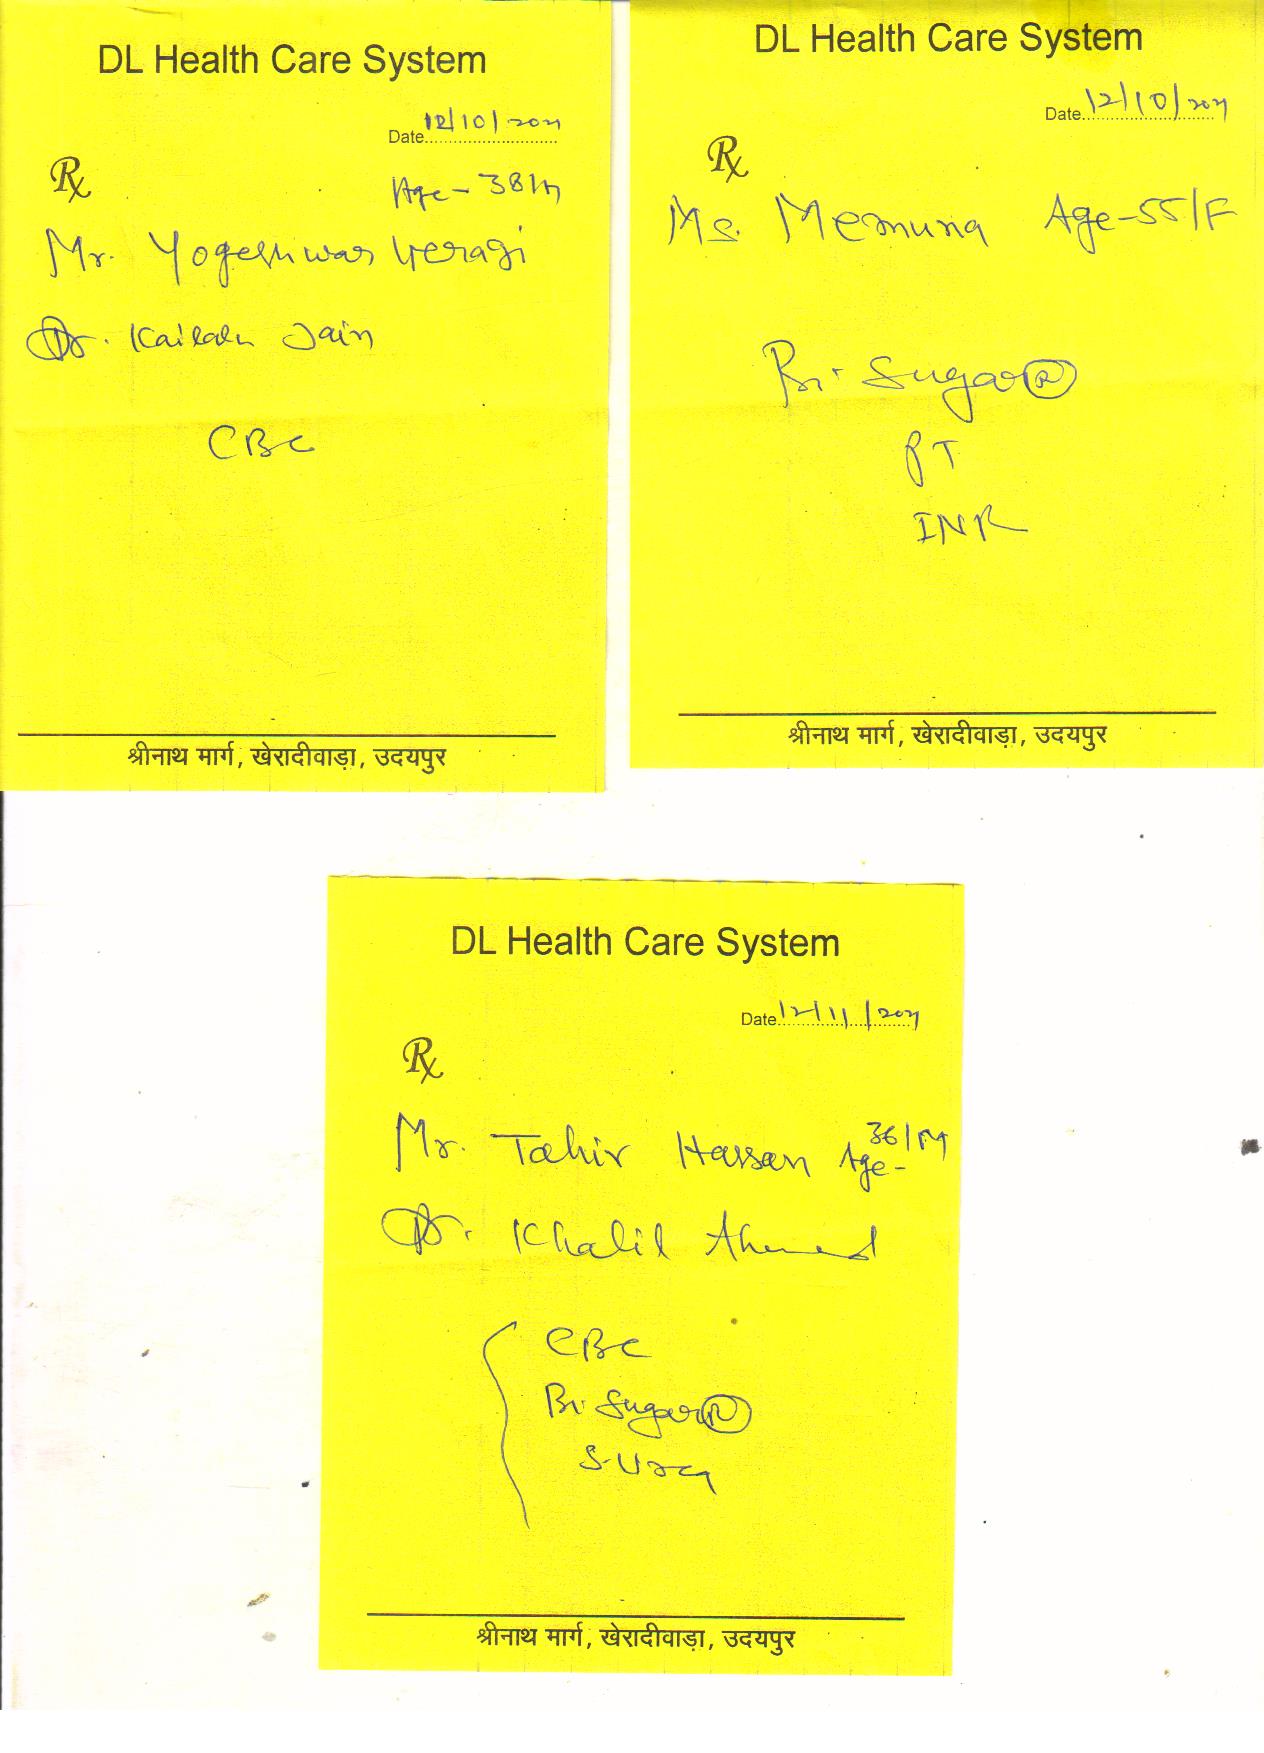 DL Health Care System
Date 12/10/2021
Rx
Age - 38/M
Mr. Yogeshwar Veragi
Dr. Kailash Jain
CBC
श्रीनाथ मार्ग, खेरादीवाड़ा, उदयपुर
DL Health Care System
Date 12/10/2021
Rx
Ms. Memuna Age-55/F
Bl. Sugar (R)
PT
INR
श्रीनाथ मार्ग, खेरादीवाड़ा, उदयपुर
DL Health Care System
Date 12/11/2021
Rx
Mr. Tahir Hassan Age- 36/M
Dr. Khalil Ahmed
CBC
Bl. Sugar (R)
S. Urea
श्रीनाथ मार्ग, खेरादीवाड़ा, उदयपुर